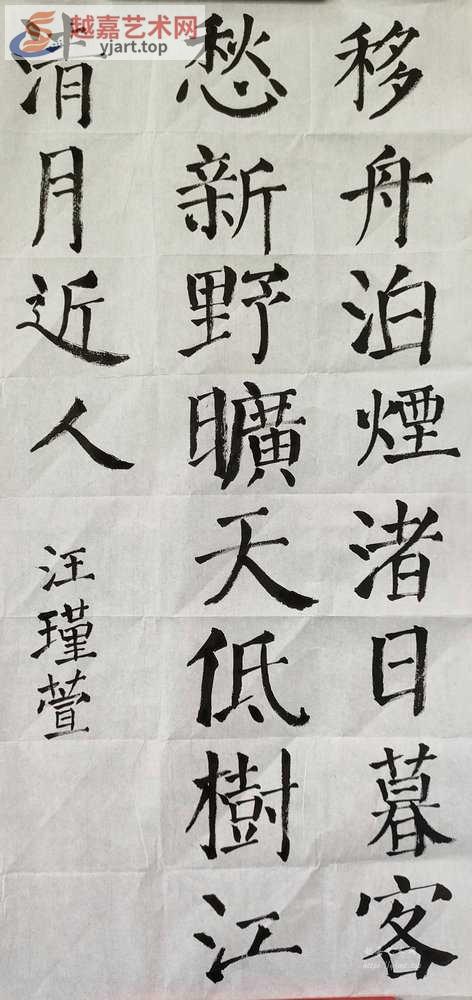 越嘉艺术网
yjart.top
移舟泊煙渚日暮客
愁新野曠天低樹江
清月近人
汪瑾萱